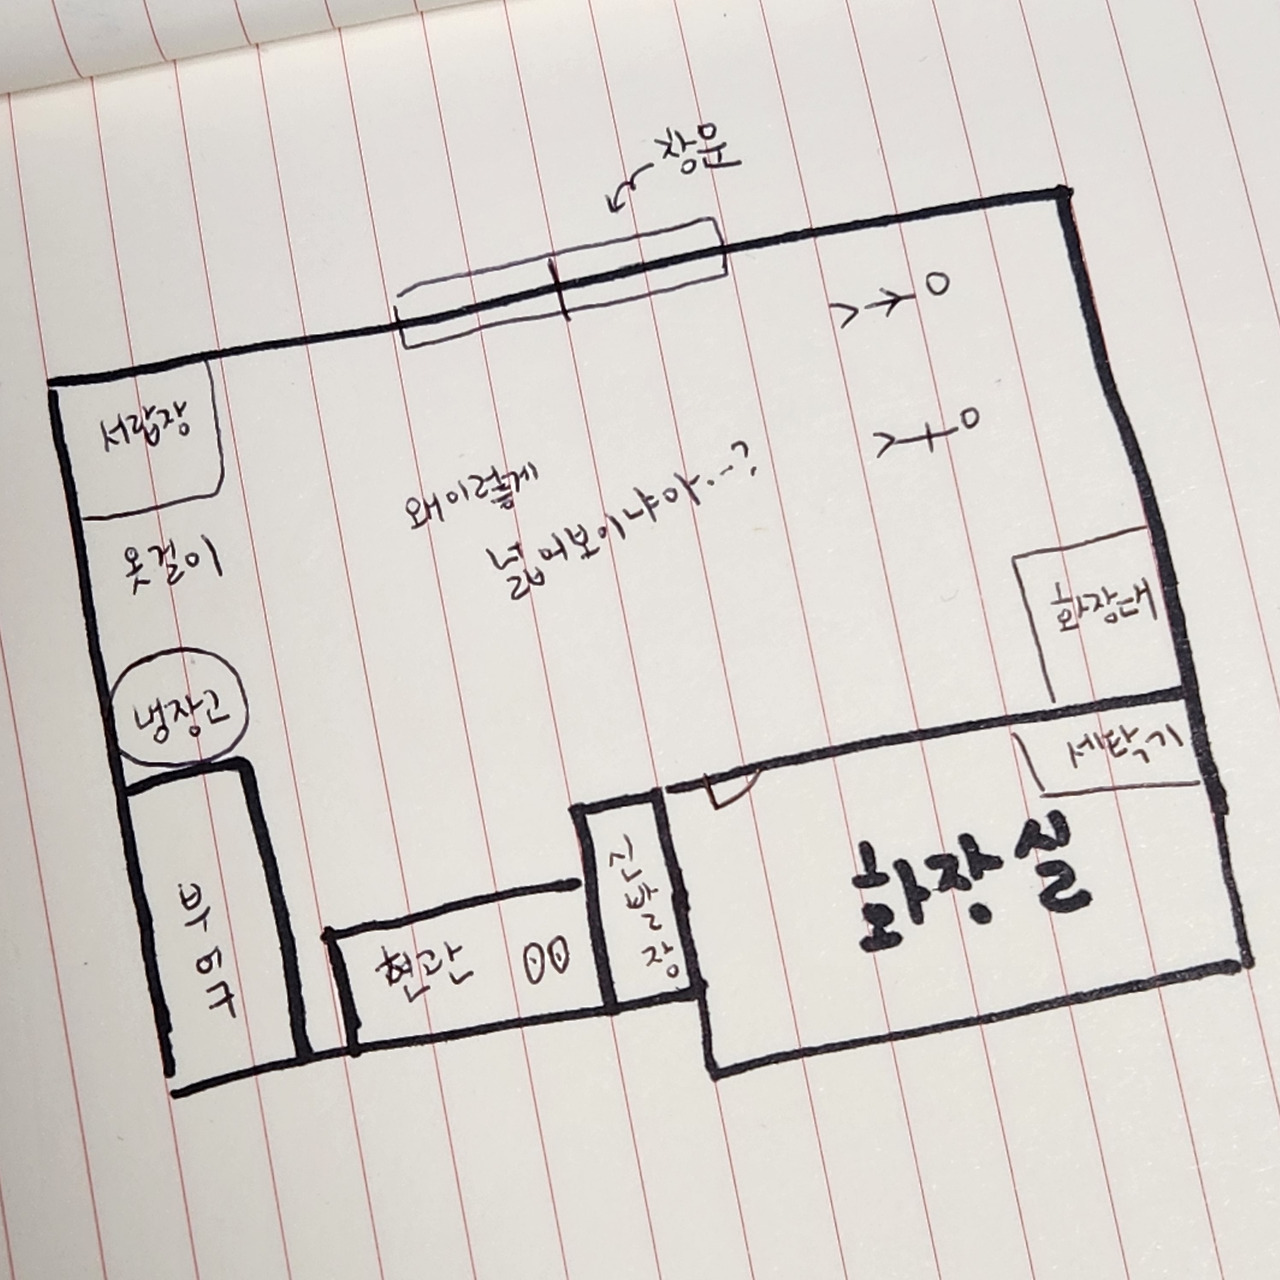 창문
서랍장
왜이렇게
넓어보이냐아..-?
옷걸이
화장대
냉장고
세탁기
신발장
화장실
부엌
현관